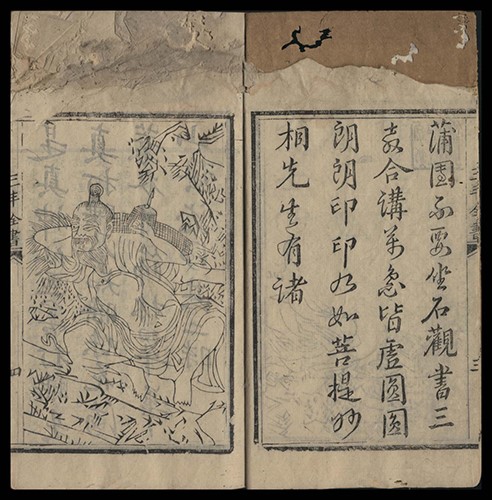 三丰全書
三
蒲團不要坐石觀書三
教合講萬念皆虛圓圓
朗朗印印乃如菩提妙
相先生有諸
三丰全書
四